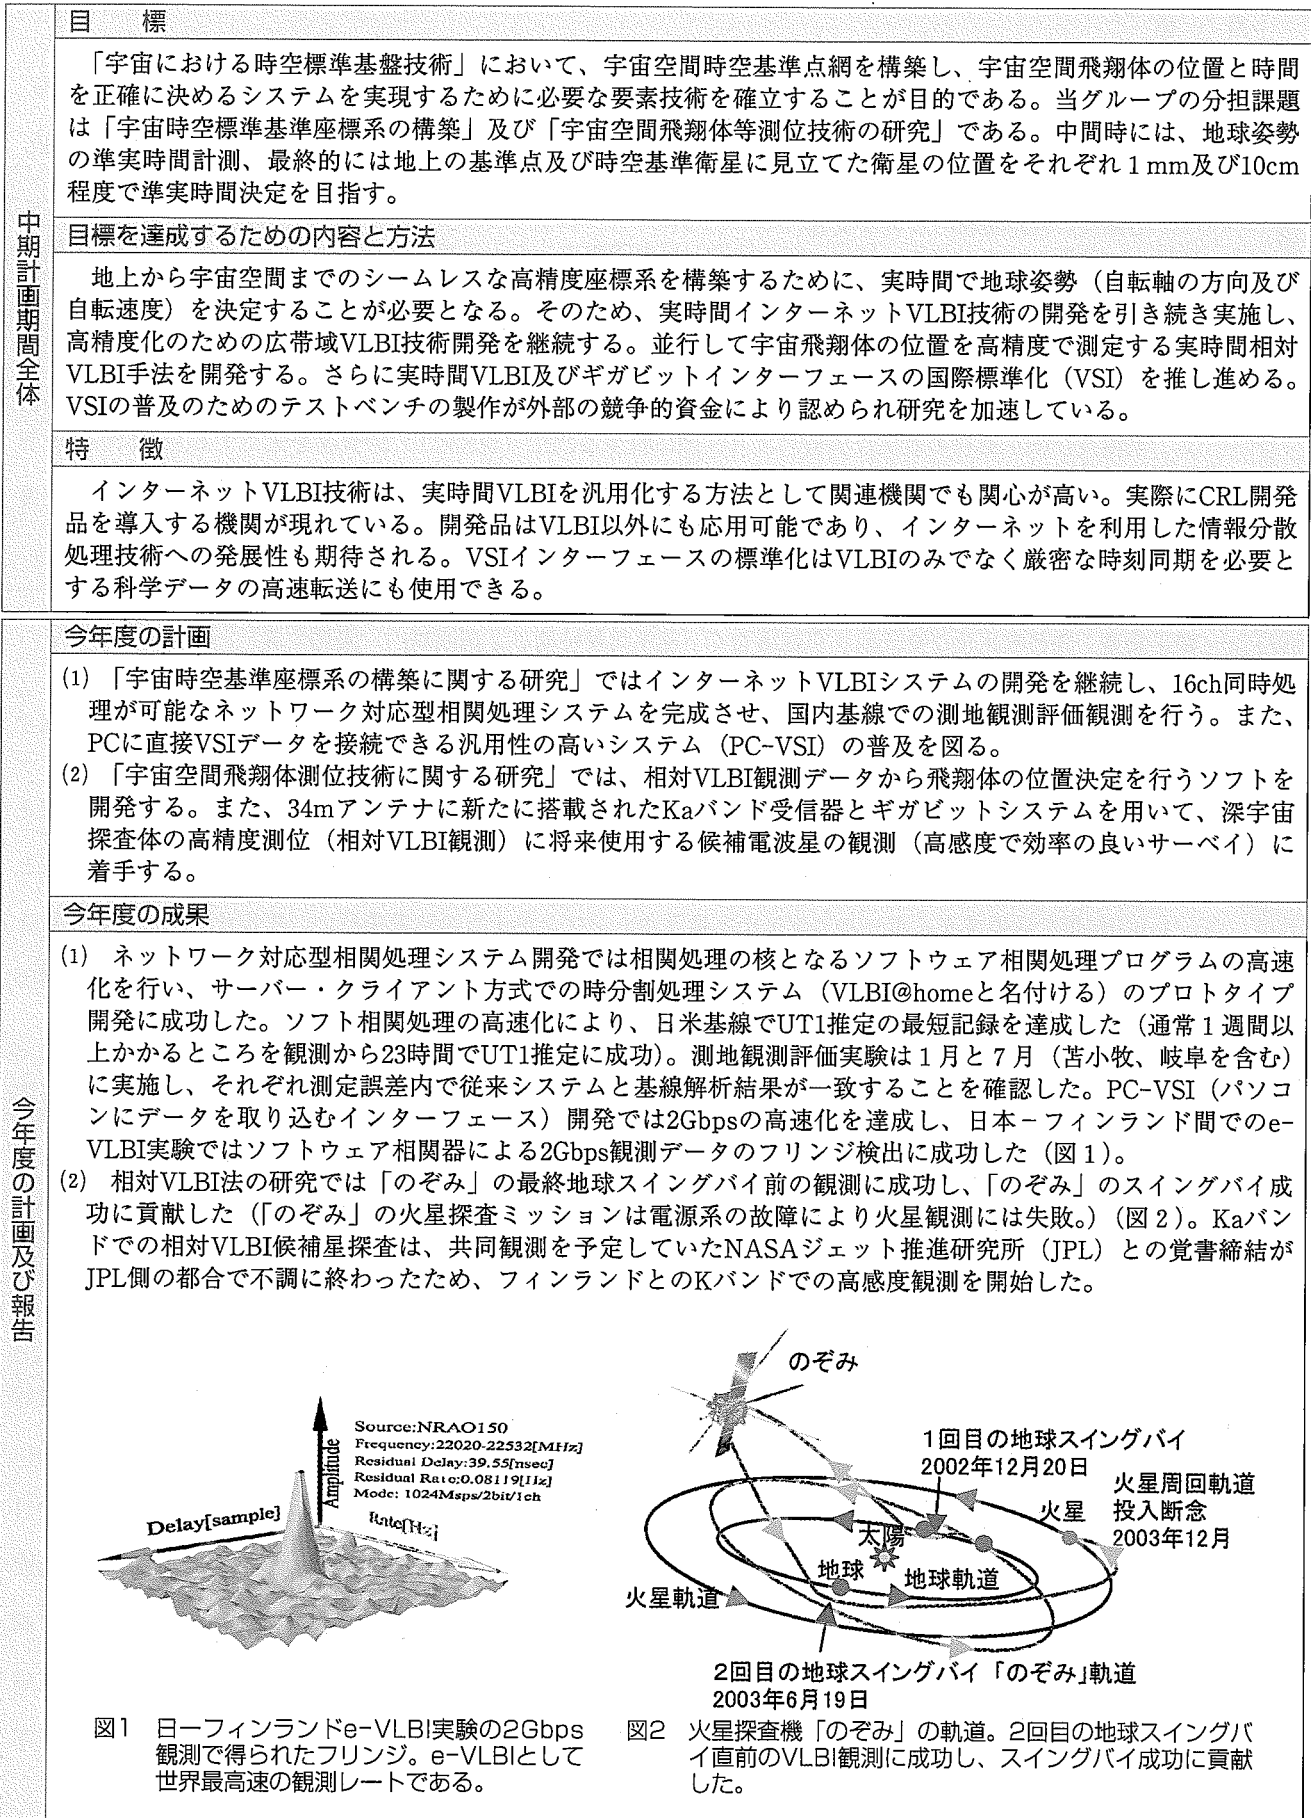 中期計画期間全体
目　標
「宇宙における時空標準基盤技術」において、宇宙空間時空基準点網を構築し、宇宙空間飛翔体の位置と時間
を正確に決めるシステムを実現するために必要な要素技術を確立することが目的である。当グループの分担課題
は「宇宙時空標準基準座標系の構築」及び「宇宙空間飛翔体等測位技術の研究」である。中間時には、地球姿勢
の準実時間計測、最終的には地上の基準点及び時空基準衛星に見立てた衛星の位置をそれぞれ1mm及び10cm
程度で準実時間決定を目指す。
目標を達成するための内容と方法
地上から宇宙空間までのシームレスな高精度座標系を構築するために、実時間で地球姿勢（自転軸の方向及び
自転速度）を決定することが必要となる。そのため、実時間インターネットVLBI技術の開発を引き続き実施し、
高精度化のための広帯域VLBI技術開発を継続する。並行して宇宙飛翔体の位置を高精度で測定する実時間相対
VLBI手法を開発する。さらに実時間VLBI及びギガビットインターフェースの国際標準化（VSI）を推し進める。
VSIの普及のためのテストベンチの製作が外部の競争的資金により認められ研究を加速している。
特　徴
インターネットVLBI技術は、実時間VLBIを汎用化する方法として関連機関でも関心が高い。実際にCRL開発
品を導入する機関が現れている。開発品はVLBI以外にも応用可能であり、インターネットを利用した情報分散
処理技術への発展性も期待される。VSIインターフェースの標準化はVLBIのみでなく厳密な時刻同期を必要と
する科学データの高速転送にも使用できる。
今年度の計画及び報告
今年度の計画
(1)　「宇宙時空基準座標系の構築に関する研究」ではインターネットVLBIシステムの開発を継続し、16ch同時処
理が可能なネットワーク対応型相関処理システムを完成させ、国内基線での測地観測評価観測を行う。また、
PCに直接VSIデータを接続できる汎用性の高いシステム（PC-VSI）の普及を図る。
(2)　「宇宙空間飛翔体測位技術に関する研究」では、相対VLBI観測データから飛翔体の位置決定を行うソフトを
開発する。また、34mアンテナに新たに搭載されたKaバンド受信器とギガビットシステムを用いて、深宇宙
探査体の高精度測位（相対VLBI観測）に将来使用する候補電波星の観測（高感度で効率の良いサーベイ）に
着手する。
今年度の成果
(1)　ネットワーク対応型相関処理システム開発では相関処理の核となるソフトウェア相関処理プログラムの高速
化を行い、サーバー・クライアント方式での時分割処理システム（VLBI@homeと名付ける）のプロトタイプ
開発に成功した。ソフト相関処理の高速化により、日米基線でUT1推定の最短記録を達成した（通常1週間以
上かかるところを観測から23時間でUT1推定に成功）。測地観測評価実験は1月と7月（苫小牧、岐阜を含む）
に実施し、それぞれ測定誤差内で従来システムと基線解析結果が一致することを確認した。PC-VSI（パソコ
ンにデータを取り込むインターフェース）開発では2Gbpsの高速化を達成し、日本－フィンランド間でのe-
VLBI実験ではソフトウェア相関器による2Gbps観測データのフリンジ検出に成功した（図1）。
(2)　相対VLBI法の研究では「のぞみ」の最終地球スイングバイ前の観測に成功し、「のぞみ」のスイングバイ成
功に貢献した（「のぞみ」の火星探査ミッションは電源系の故障により火星観測には失敗。）（図2）。Kaバン
ドでの相対VLBI候補星探査は、共同観測を予定していたNASAジェット推進研究所（JPL）との覚書締結が
JPL側の都合で不調に終わったため、フィンランドとのKバンドでの高感度観測を開始した。
Amplitude
Source:NRAO150
Frequency:22020-22532[MHz]
Residual Delay:39.55[nsec]
Residual Rate:0.08119[Hz]
Mode: 1024Msps/2bit/1ch
Delay[sample]
Rate[Hz]
図1　日ーフィンランドe-VLBI実験の2Gbps
観測で得られたフリンジ。e-VLBIとして
世界最高速の観測レートである。
のぞみ
1回目の地球スイングバイ
2002年12月20日
火星周回軌道
投入断念
2003年12月
火星
太陽
地球
地球軌道
火星軌道
2回目の地球スイングバイ
2003年6月19日
「のぞみ」軌道
図2　火星探査機「のぞみ」の軌道。2回目の地球スイングバ
イ直前のVLBI観測に成功し、スイングバイ成功に貢献
した。